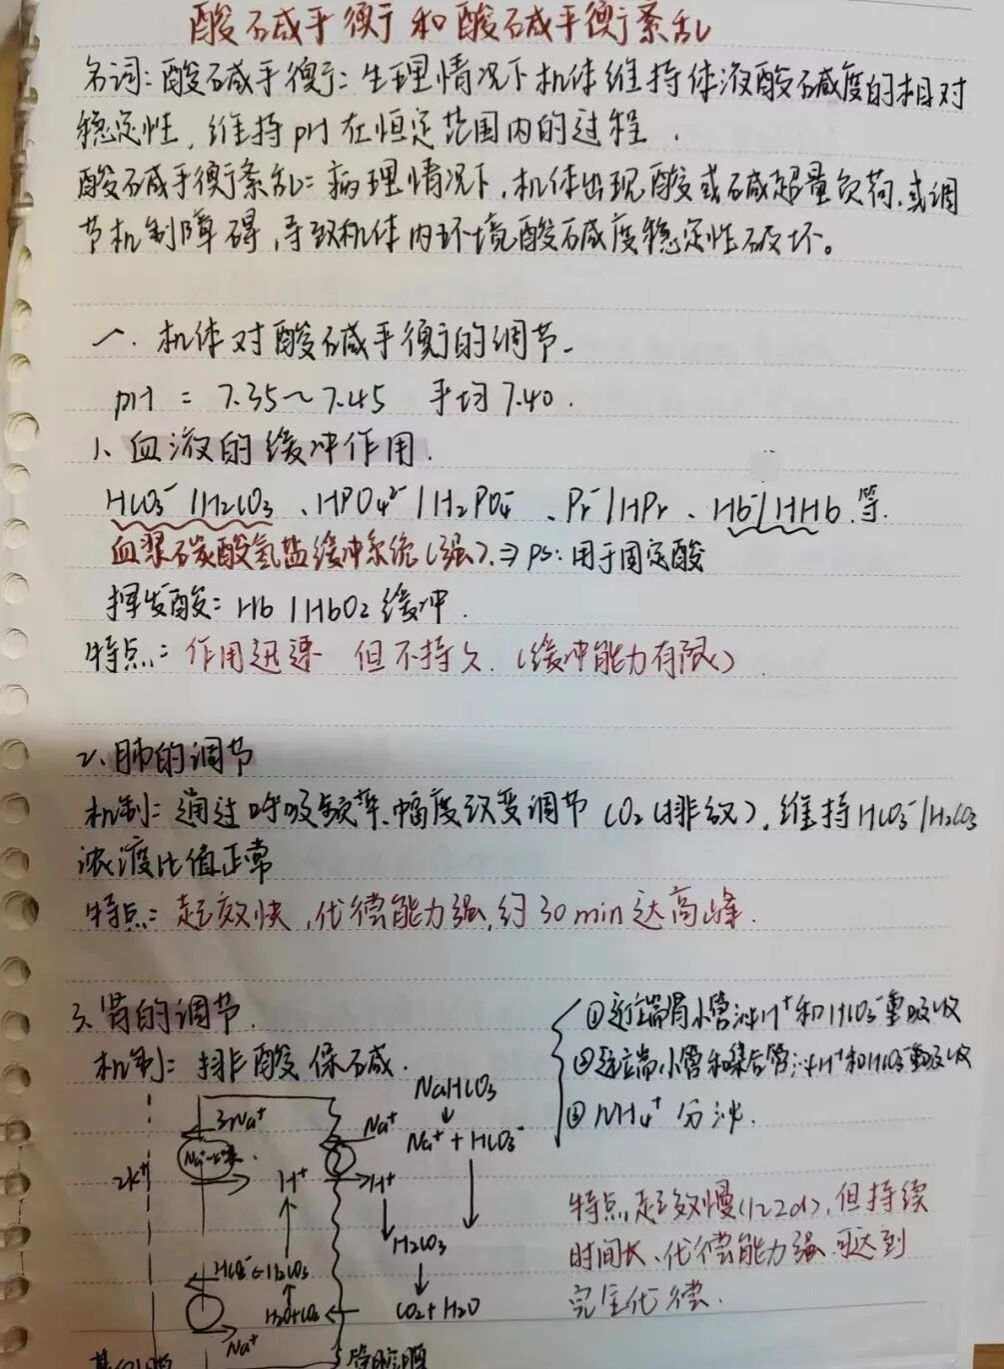 酸碱平衡和酸碱平衡紊乱
名词:酸碱平衡:生理情况下机体维持体液酸碱度的相对
稳定性,维持pH在恒定范围内的过程.
酸碱平衡紊乱:病理情况下,机体出现酸或碱超量负荷,或调
节机制障碍,导致机体内环境酸碱度稳定性破坏。
一.机体对酸碱平衡的调节.
pH = 7.35~7.45 平均7.40.
1、血液的缓冲作用.
HCO₃⁻/H₂CO₃、HPO₄²⁻/H₂PO₄⁻、Pr⁻/HPr、Hb⁻/HHb等.
血浆碳酸氢盐缓冲系统(强).⇒ps:用于固定酸
挥发酸:Hb/HbO₂缓冲.
特点:作用迅速 但不持久.(缓冲能力有限)
2、肺的调节
机制:通过呼吸频率、幅度改变调节CO₂(排放),维持HCO₃⁻/H₂CO₃
浓度比值正常
特点:起效快,代偿能力强,约30min达高峰.
3、肾的调节.
机制:排酸保碱.
①近端肾小管泌H⁺和HCO₃⁻重吸收
②远端小管和集合管泌H⁺和HCO₃⁻重吸收
③NH₄⁺分泌.
NaHCO₃
3Na⁺ Na⁺ Na⁺+HCO₃⁻
2K⁺ H⁺ H⁺
H₂CO₃
HCO₃⁻←H₂CO₃
H₂O+CO₂ CO₂+H₂O
Na⁺
特点,起效慢(12~20h),但持续
时间长、代偿能力强,可达到
完全代偿.
管腔膜